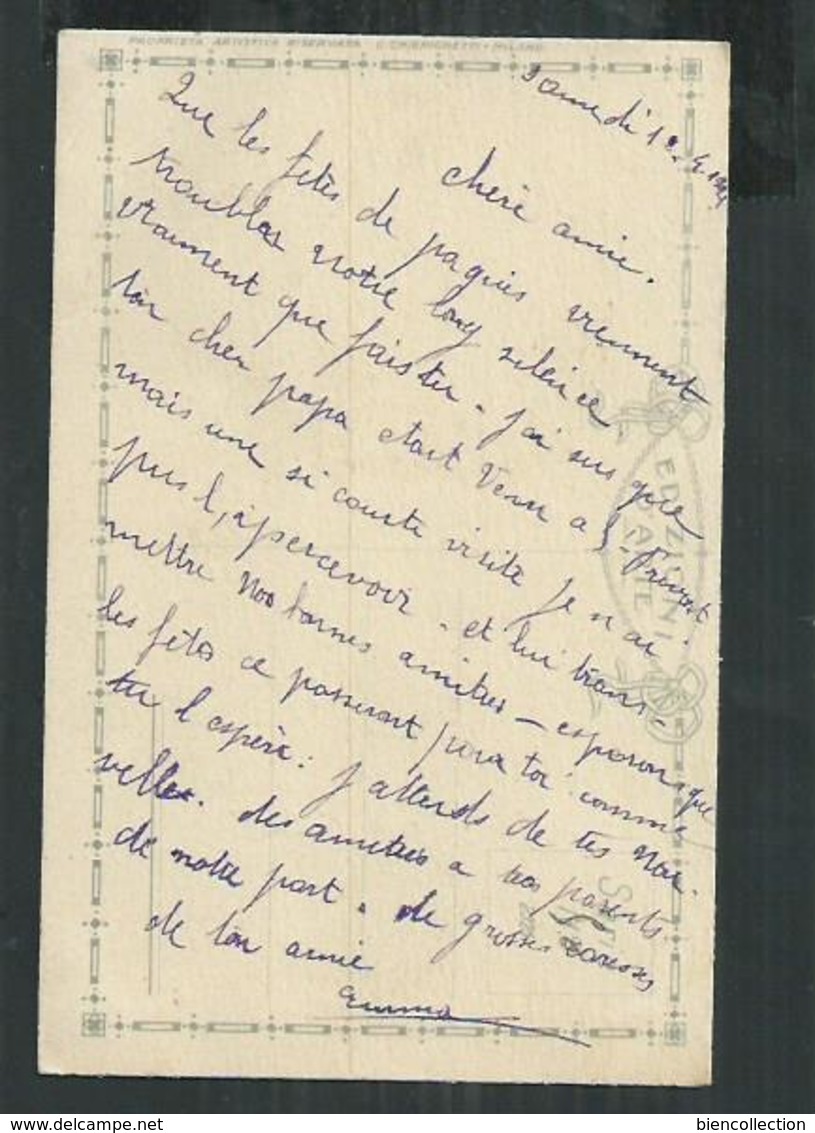 PROPRIETÀ ARTISTICA RISERVATA C. CHIERICHETTI - MILANO
Samedi 12-4
chère amie.
Que les fetès de paques viennent
troubler notre long silence
vraiment que fais tu. j'ai sus que
ton cher papa etait venu a S. Privat
mais une si courte visite je n'ai
pus l'apercevoir. et lui trans-
mettre nos bonnes amities - esperons que
les fêtes ce passeront pour toi comme
tu l'espère: j'attends de tes nou-
velles. des amities a tes parents
de notre part. de grosses caresses
de ton amie
Emma
EDIZIONI
D'ARTE
biencollection